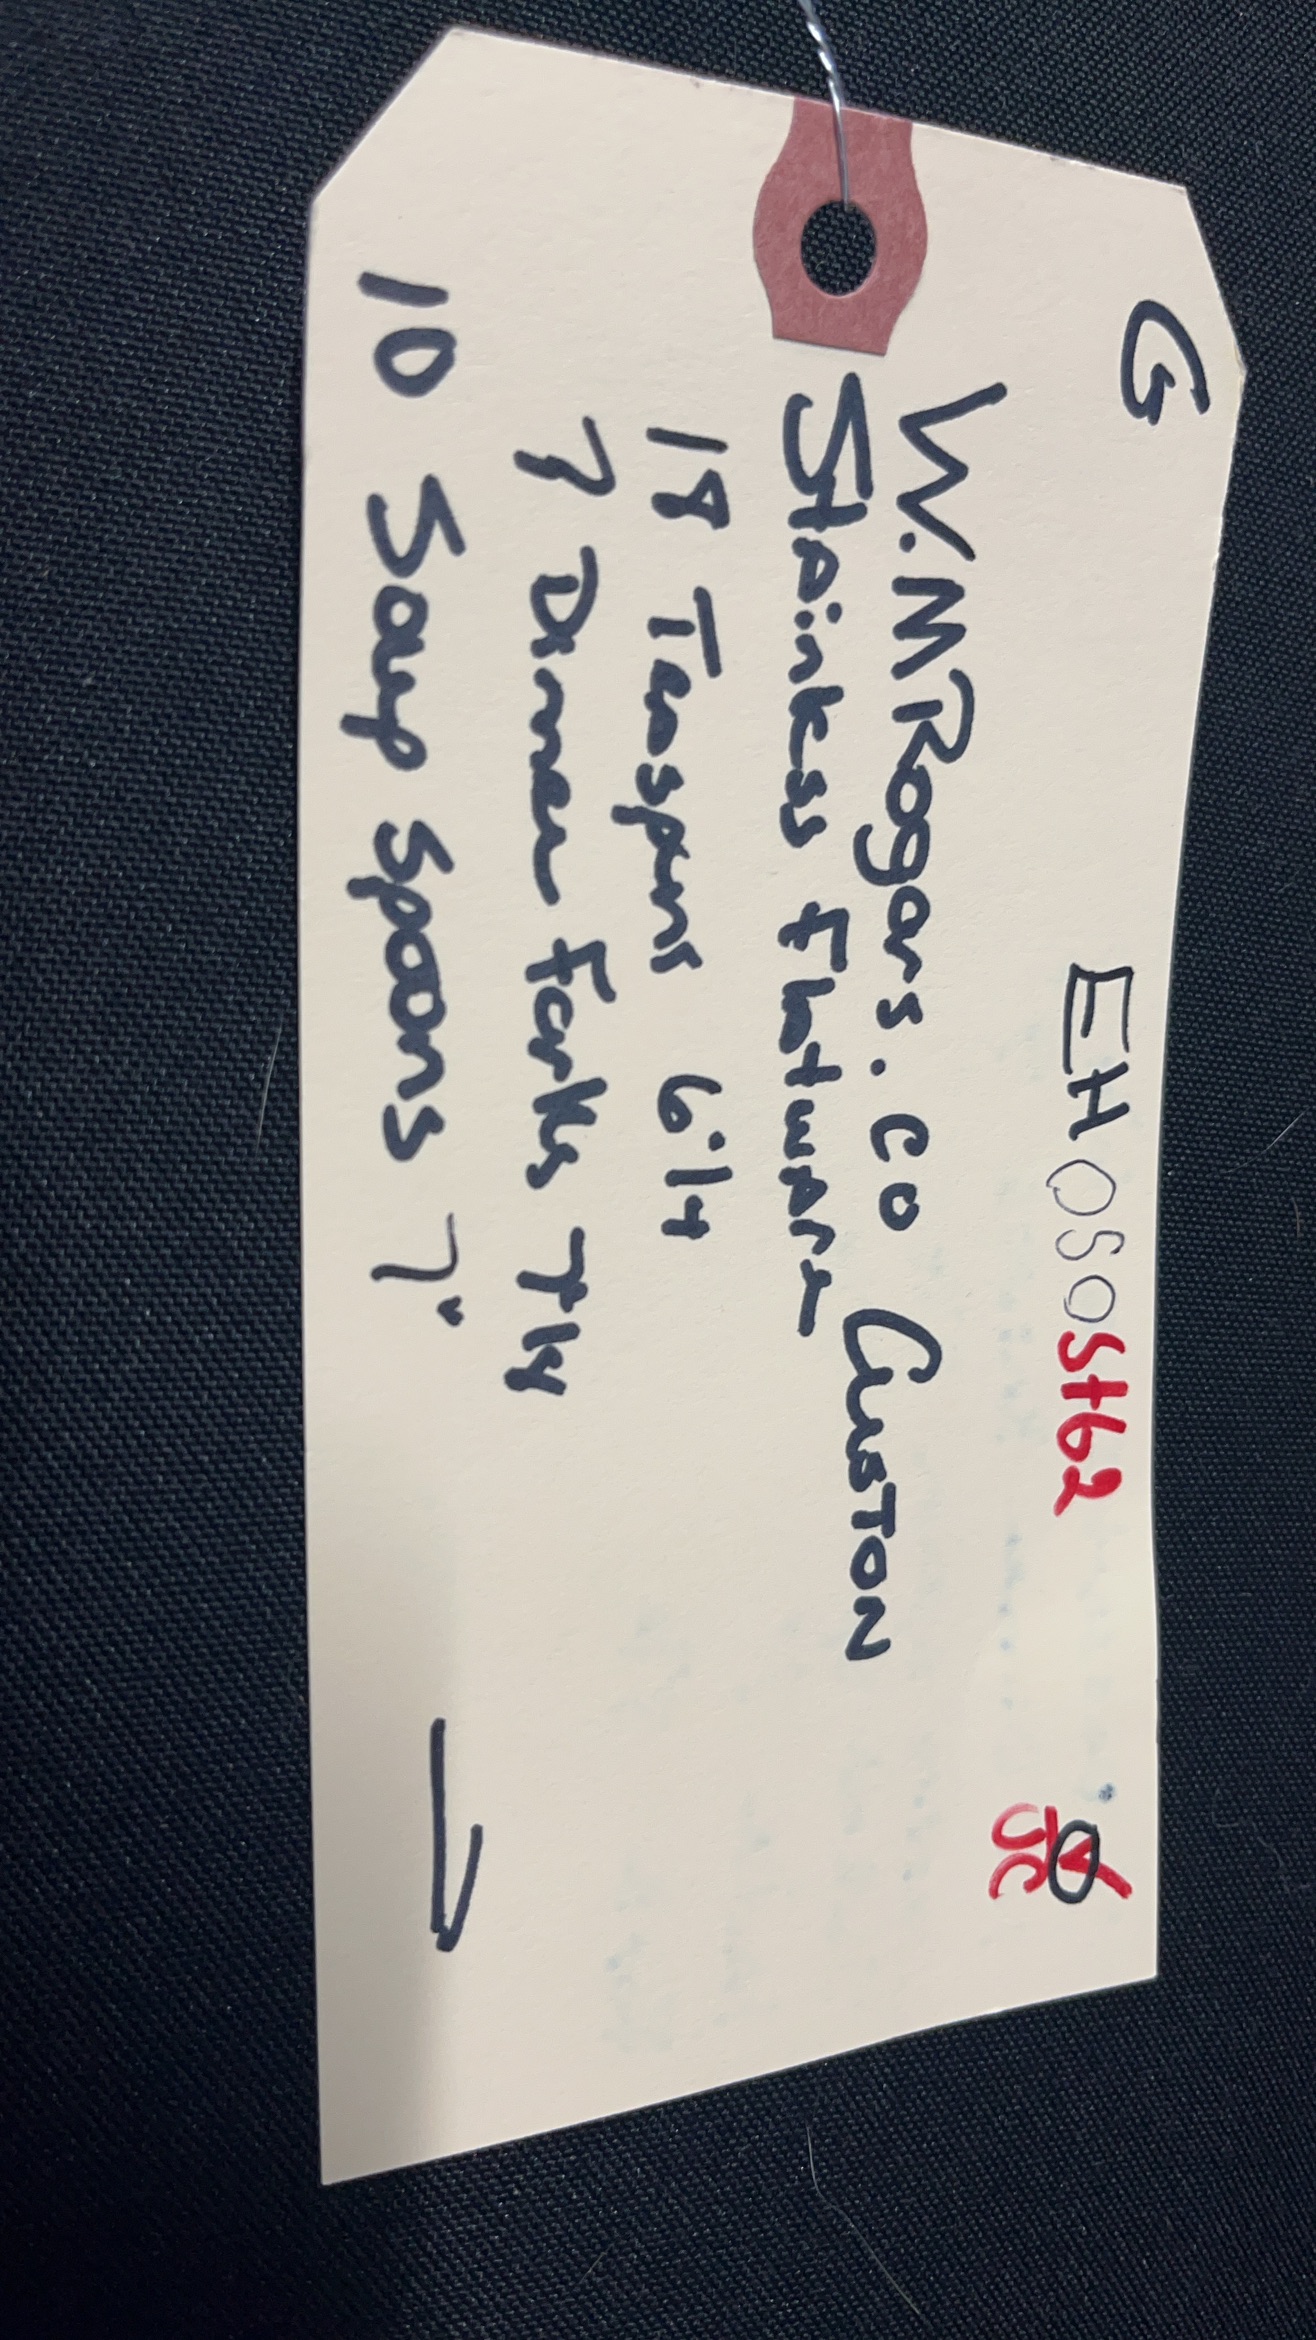 G EH080SH62
JC
W.M Rogers.co Custon
Stainless Flatware
18 Teaspons 6 1/4
7 Dinner Forks 7 1/4
10 Soup Spoons 7"